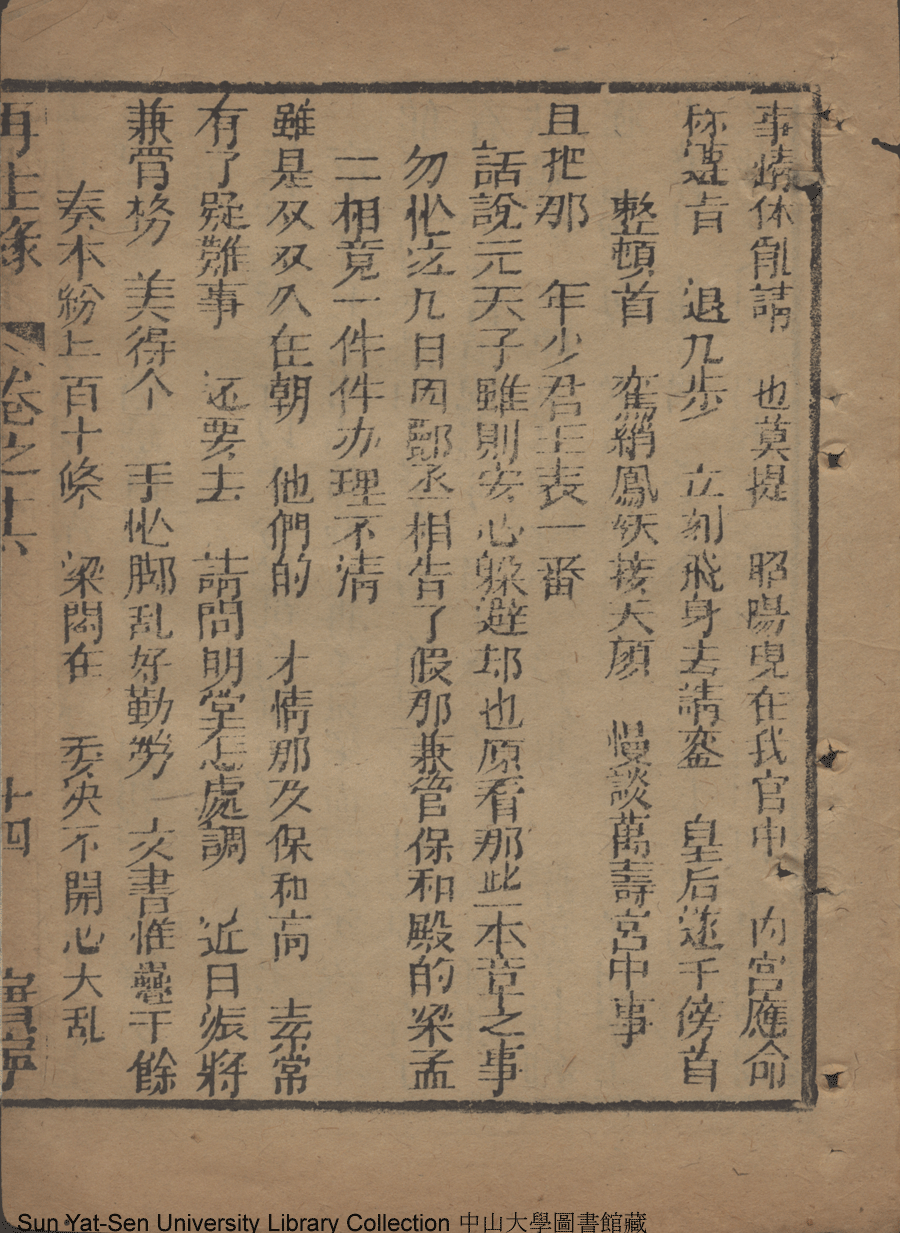 事情休亂講　也莫提　昭陽現在我宫中　内宫應命
称連旨　退几步　立刻飛身去請鸞　皇后遂千傍首
整頓首　鳳　接天顔　慢談萬壽宮中事
且把那　年少君王表一番
話說元天子雖則安心躲避却也原看那些本章之事
勿忙这几日因鄭丞相告了假那兼管保和殿的梁孟
二相竟一件件办理不清
雖是双双久在朝　他們的　才情那及保和高　素常
有了疑難事　还要去　請問明堂怎處調　近日振將
兼管格　美得个　手忙脚乱好勤勞　文書堆疊千餘
奏本紛紛百十條　梁閣在　委实不開心大乱
再生緣　卷之十六　十四　寳寧
Sun Yat-Sen University Library Collection 中山大學圖書館藏